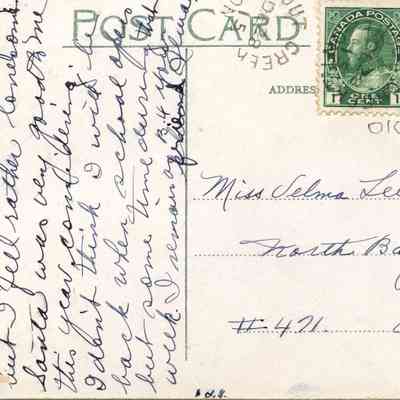 POST CARD
CANADA POSTAGE
1 1
ONE CENT
ADDRES
TROUT CREEK
but I feel rather lonesome
Santa was very good to me
this year considering.
I didn't think I will be
back when school opens
but some time during that
week I remain your
friend Selma
Miss Selma Lee
North Ba
#471.